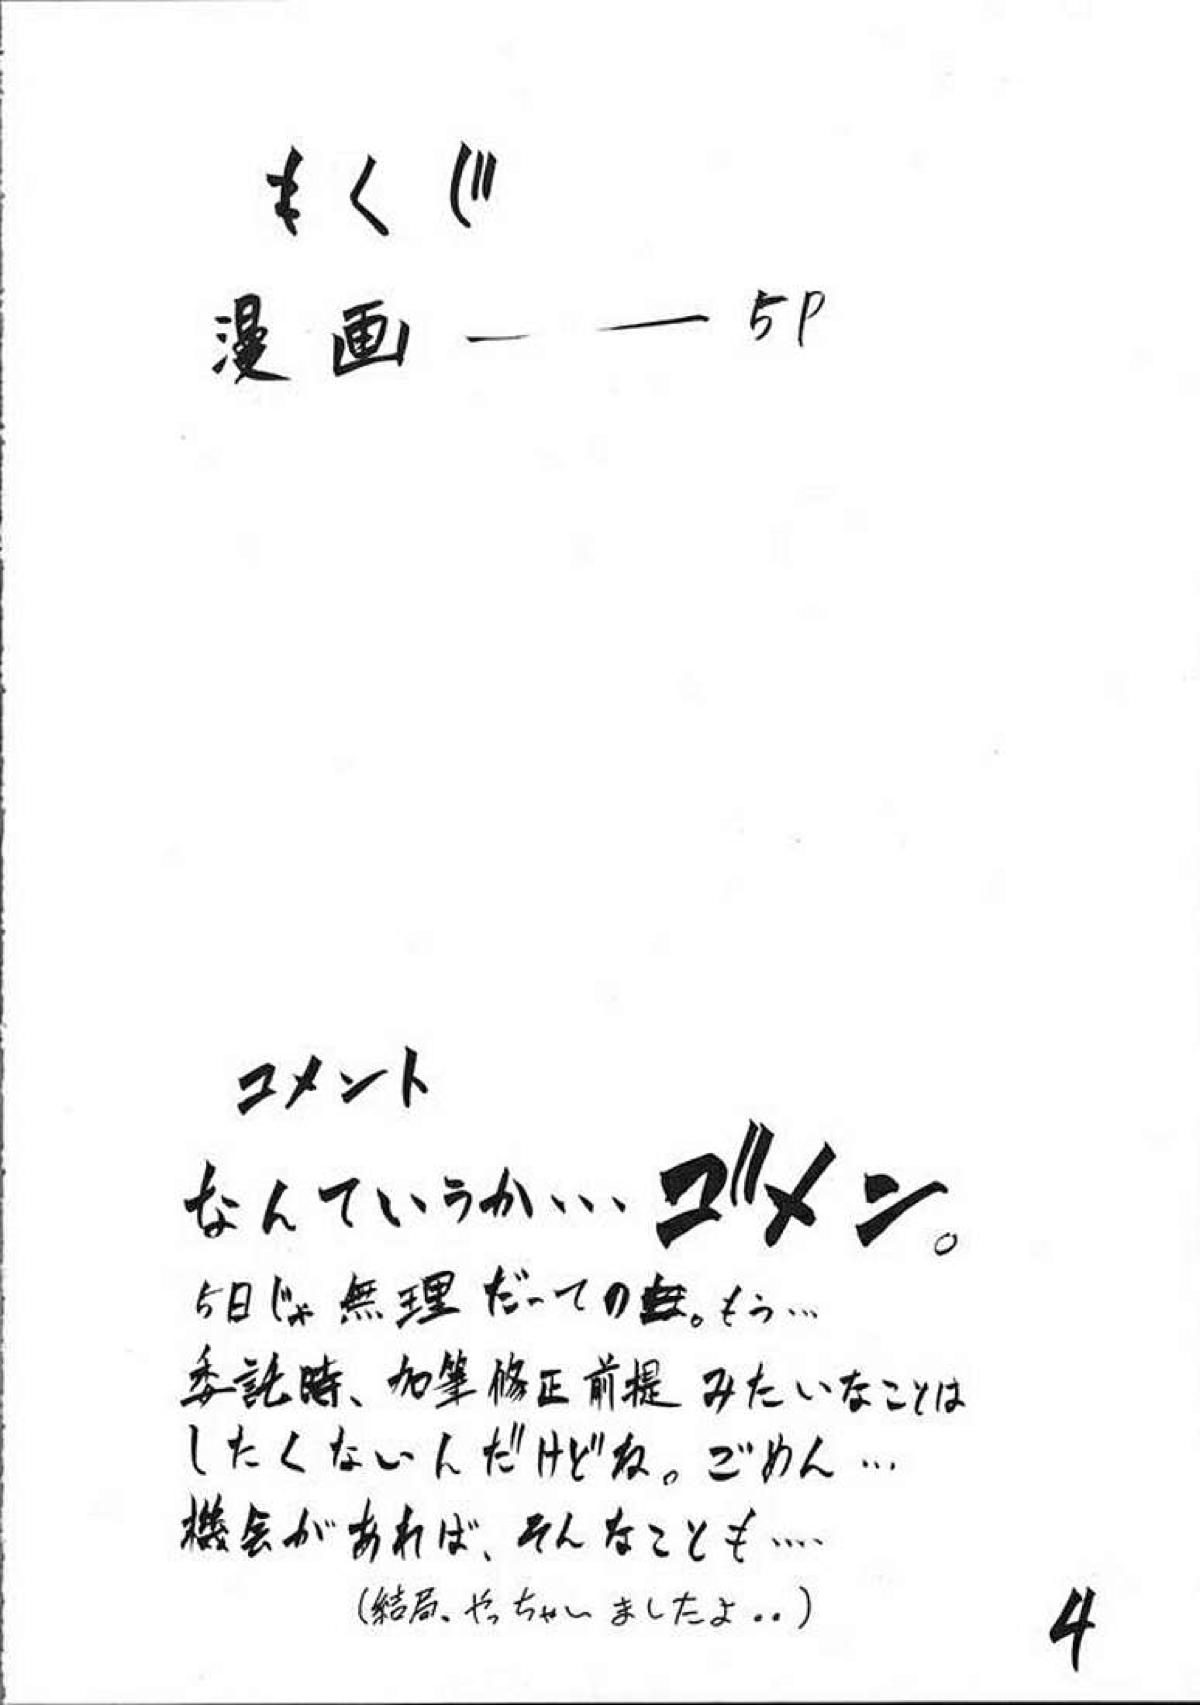 もくじ
漫画——5P
コメント
なんていうか…ゴメン。
5日じゃ無理だっての。もう…
委託時、加筆修正前提みたいなことは
したくないんだけどね。ごめん…
機会があれば、そんなことも….
(結局、やっちゃいましたよ..)
4